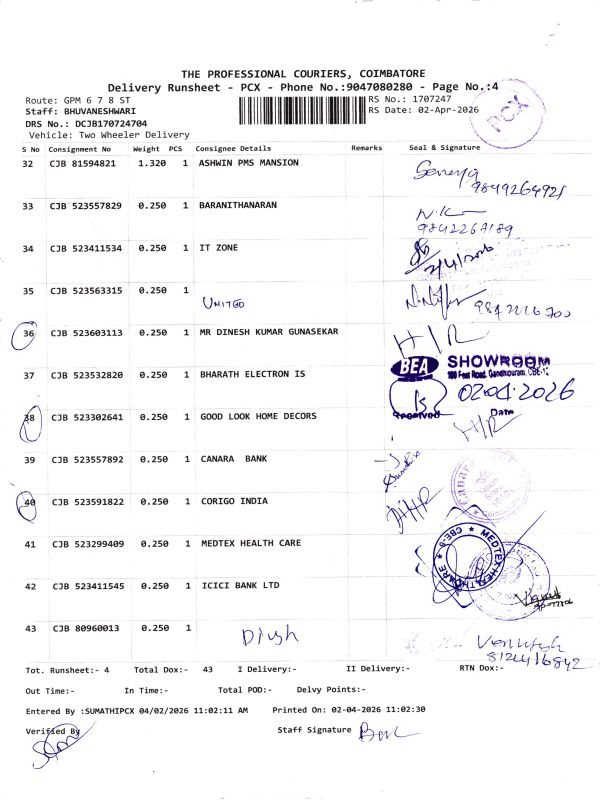 THE PROFESSIONAL COURIERS, COIMBATORE
Delivery Runsheet - PCX - Phone No.:9047080280 - Page No.:4
Route: GPM 6 7 8 ST
RS No.: 1707247
Staff: BHUVANESHWARI
RS Date: 02-Apr-2026
PCX
DRS No.: DCJB170724704
Vehicle: Two Wheeler Delivery
S No Consignment No Weight PCS Consignee Details Remarks Seal & Signature
32 CJB 81594821 1.320 1 ASHWIN PMS MANSION
9849264921
33 CJB 523557829 0.250 1 BARANITHANARAN
N.K
9842267189
34 CJB 523411534 0.250 1 IT ZONE
2/4/2026
35 CJB 523563315 0.250 1
UNITGO
36 CJB 523603113 0.250 1 MR DINESH KUMAR GUNASEKAR H/R
37 CJB 523532820 0.250 1 BHARATH ELECTRON IS
BEA SHOWROOM
100 Feet Road, Gandhipuram, CBE-12
02.04.2026
Received Date
38 CJB 523302641 0.250 1 GOOD LOOK HOME DECORS H/R
39 CJB 523557892 0.250 1 CANARA BANK
40 CJB 523591822 0.250 1 CORIGO INDIA
41 CJB 523299409 0.250 1 MEDTEX HEALTH CARE
MEDTEX HEALTH CARE ★ CBE-9 ★
42 CJB 523411545 0.250 1 ICICI BANK LTD
43 CJB 80960013 0.250 1
Divsh
8124416842
Tot. Runsheet:- 4 Total Dox:- 43 I Delivery:- II Delivery:- RTN Dox:-
Out Time:- In Time:- Total POD:- Delvy Points:-
Entered By :SUMATHIPCX 04/02/2026 11:02:11 AM Printed On: 02-04-2026 11:02:30
Verified By Staff Signature